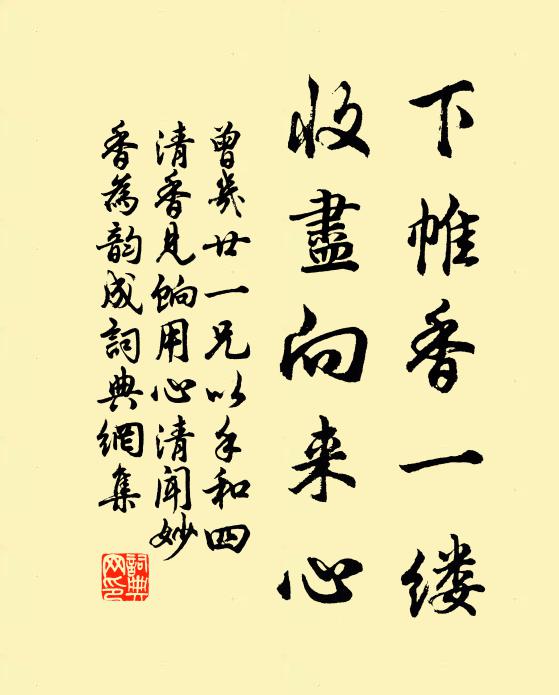 下帷香一缕
收盡向来心
曾幾廿一兄以手和四
清香見餉用心清聞妙
香為韵成詞典網集
詞典網印